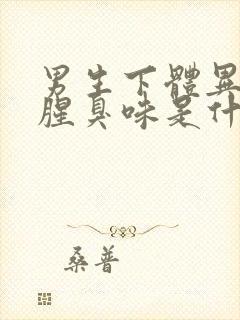 男生下體異
腥臭味是什
桑普